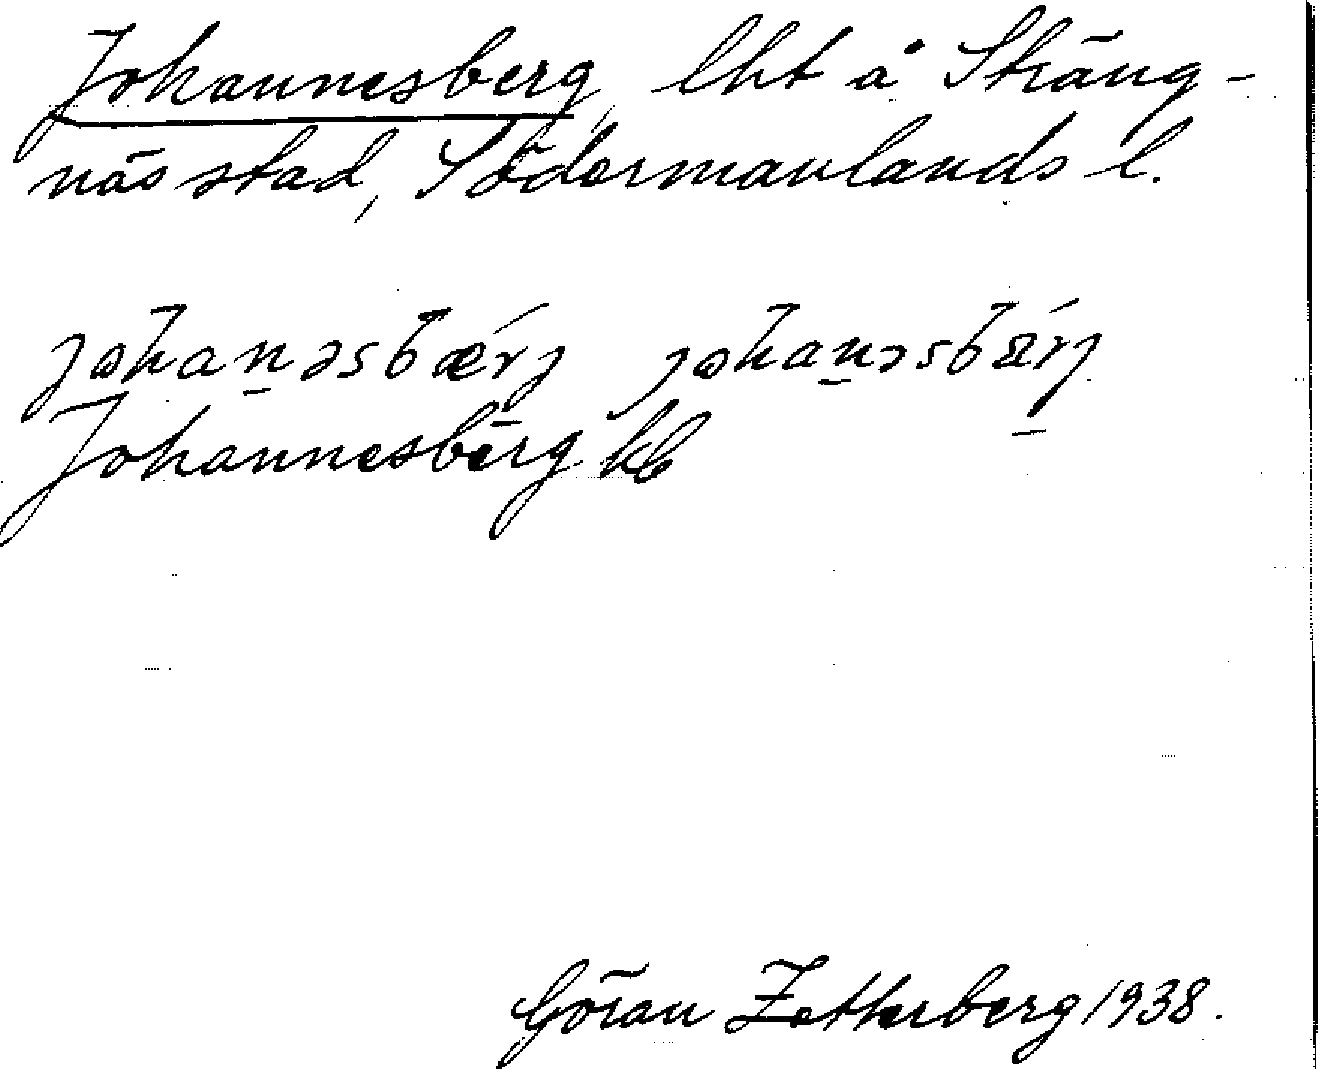 Johannesberg, lht å Sträng-
näs stad, Södermanlands l.
johan̲əsbærj johan̲əsbærj
Johannesberg kb
Göran Zetterberg 1938.